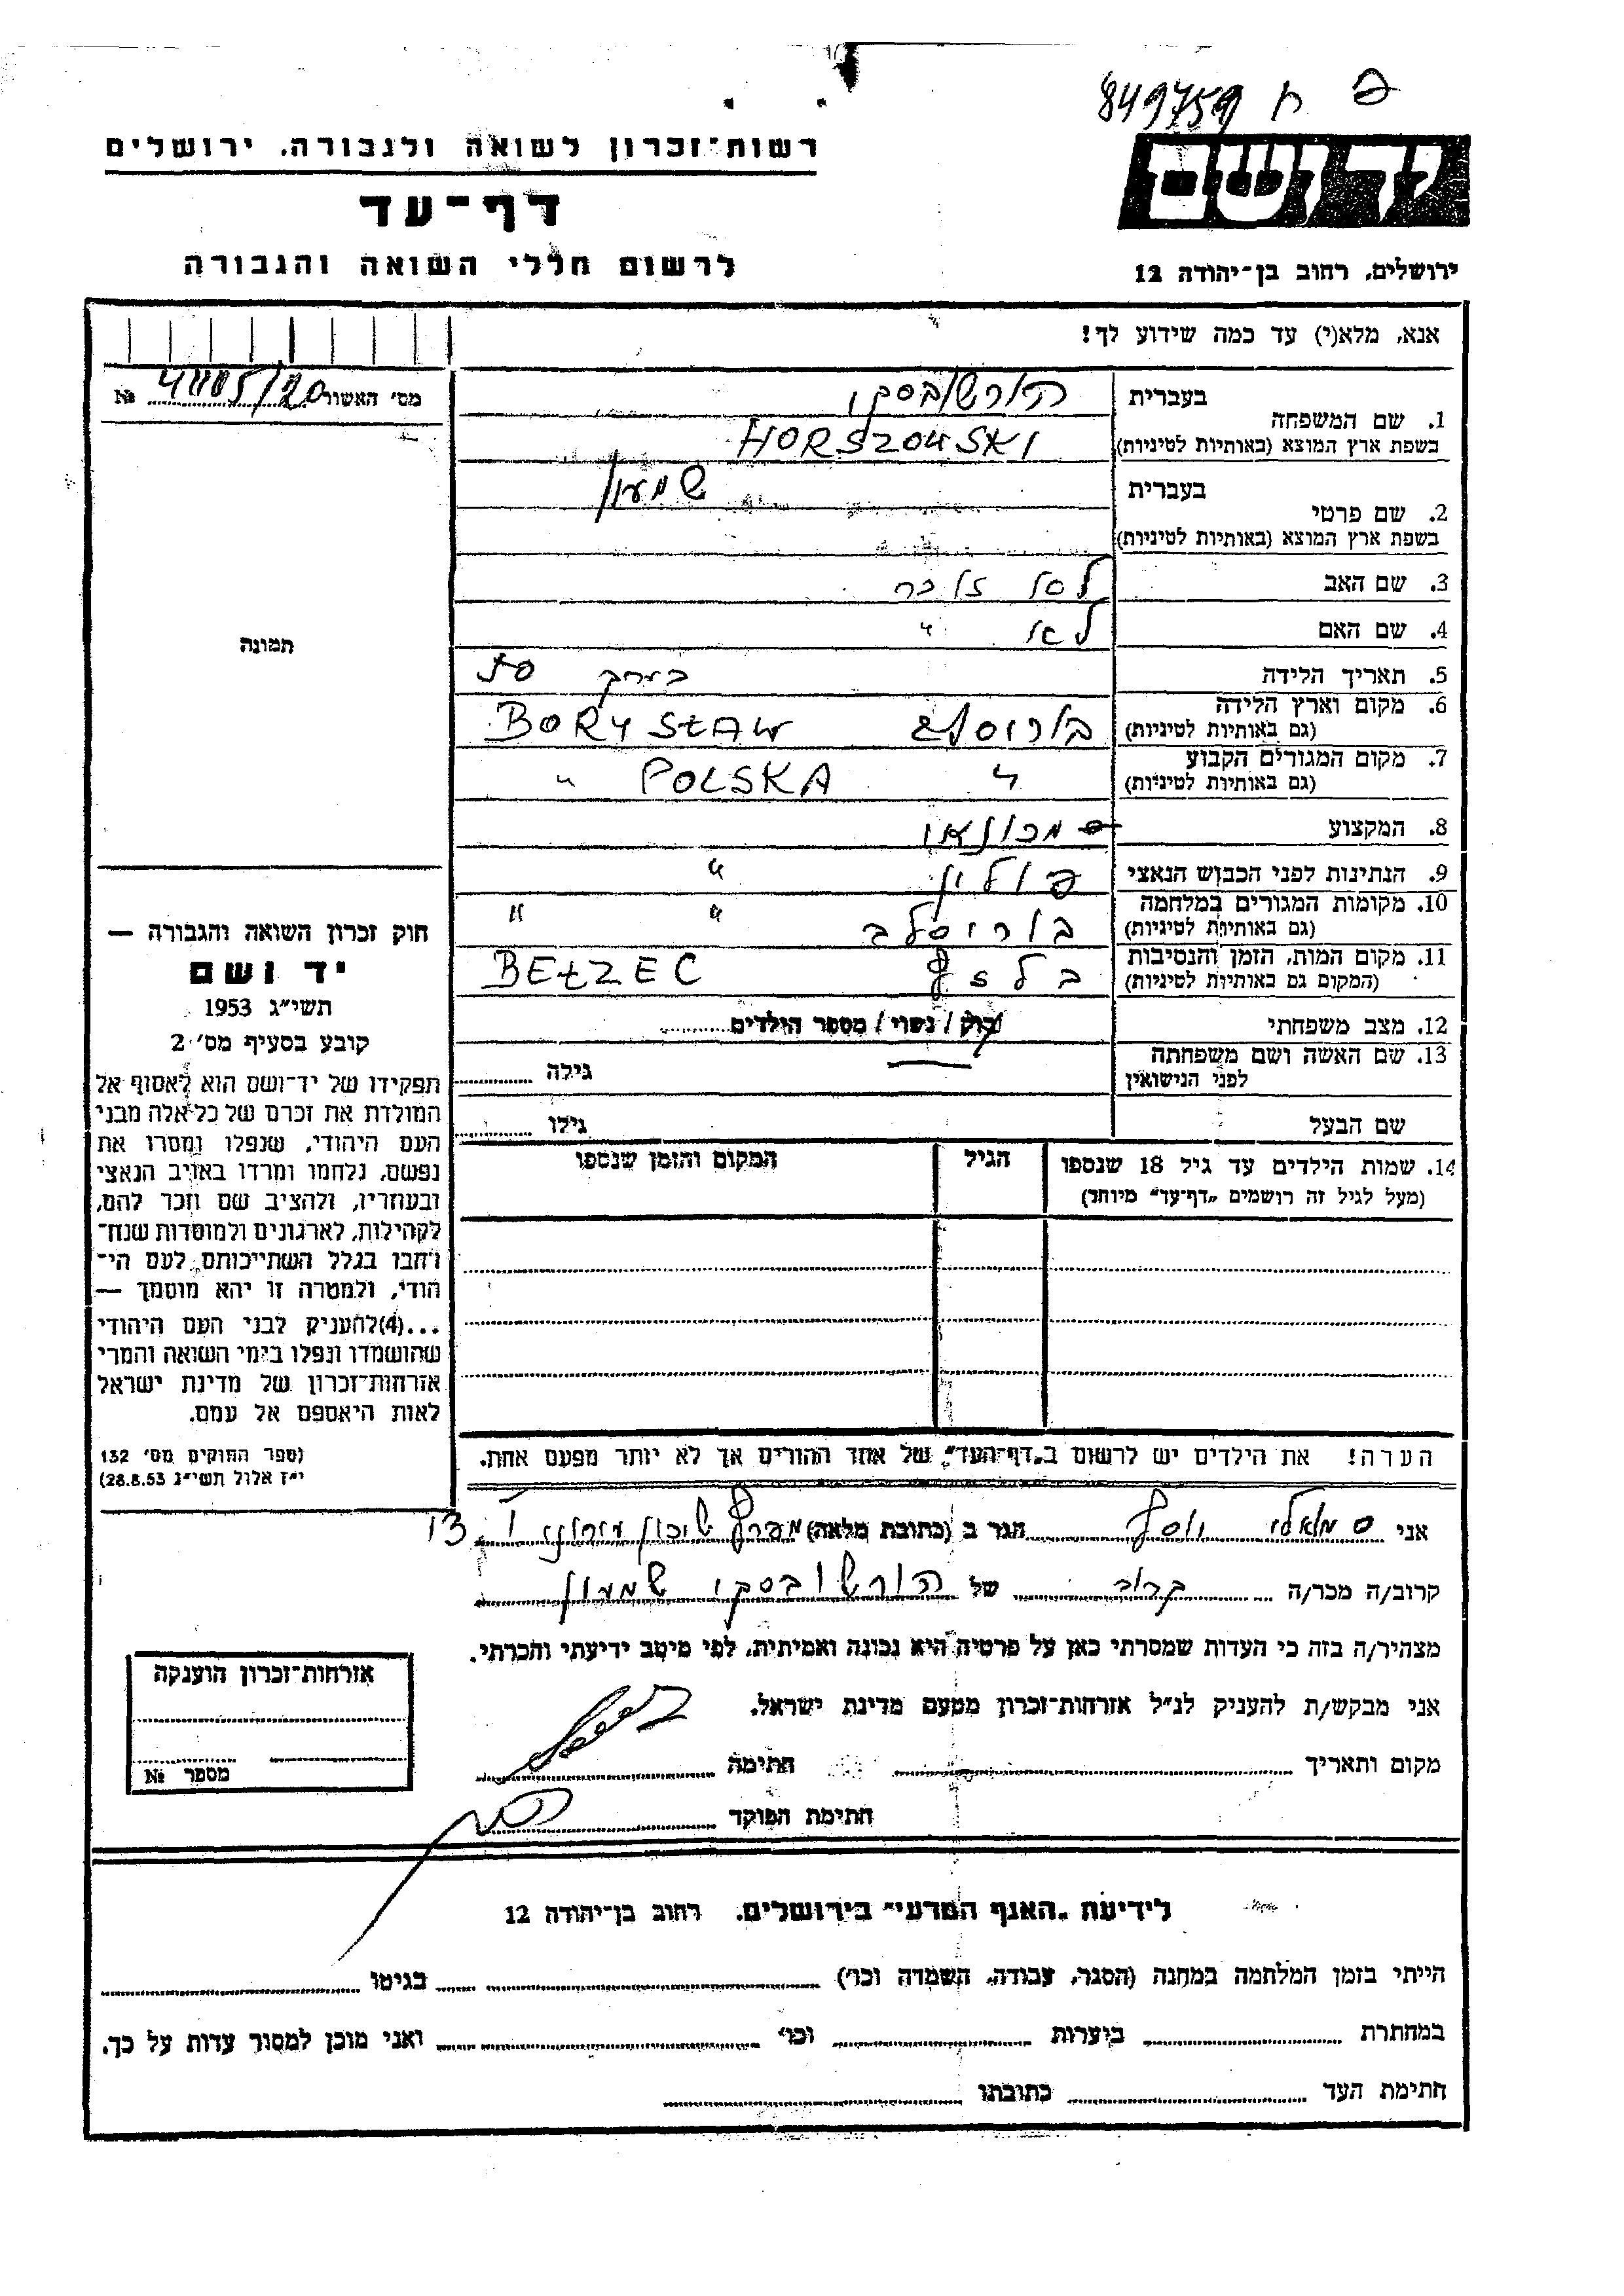 849759 ח פ
רשות־זכרון לשואה ולגבורה, ירושלים
יד ושם
דף־עד
לרשום חללי השואה והגבורה
ירושלים, רחוב בן־יהודה 12
אנא, מלא(י) עד כמה שידוע לך!
מס׳ האשור №
1. שם המשפחה בעברית הורשובסקי
בשפת ארץ המוצא (באותיות לטיניות) HORSZOWSKI
2. שם פרטי בעברית שמעון
בשפת ארץ המוצא (באותיות לטיניות)
3. שם האב לא זוכר
4. שם האם לא "
תמונה
5. תאריך הלידה בערך 50
6. מקום וארץ הלידה (גם באותיות לטיניות) בוריסלב BORYSŁAW
7. מקום המגורים הקבוע (גם באותיות לטיניות) " POLSKA "
8. המקצוע מכונאי
9. הנתינות לפני הכבוש הנאצי פולין "
10. מקומות המגורים במלחמה (גם באותיות לטיניות) בוריסלב " "
11. מקום המות, הזמן והנסיבות (המקום גם באותיות לטיניות) בלזץ BEŁZEC
12. מצב משפחתי רוק / נשוי / מספר הילדים
13. שם האשה ושם משפחתה לפני הנישואין גילה
שם הבעל גילו
14. שמות הילדים עד גיל 18 שנספו הגיל המקום והזמן שנספו
(מעל לגיל זה רושמים „דף־עד״ מיוחד)
חוק זכרון השואה והגבורה —
יד ושם
תשי״ג 1953
קובע בסעיף מס׳ 2
תפקידו של יד־ושם הוא לאסוף אל
המולדת את זכרם של כל אלה מבני
העם היהודי, שנפלו ומסרו את
נפשם, נלחמו ומרדו באויב הנאצי
ובעוזריו, ולהציב שם וזכר להם,
לקהילות, לארגונים ולמוסדות שנח־
רחבו בגלל השתייכותם לעם הי־
הודי, ולמטרה זו יהא מוסמך —
...(4)להעניק לבני העם היהודי
שהושמדו ונפלו בימי השואה והמרי
אזרחות־זכרון של מדינת ישראל
לאות היאספם אל עמם.
(ספר החוקים מס׳ 132
י״ז אלול תשי״ג 28.8.53)
הערה! את הילדים יש לרשום ב„דף־העד״, של אחד ההורים אך לא יותר מפעם אחת.
אני יוסף הגר ב (כתובת מלאה) שיכון 13
קרוב/ה מכר/ה קרוב של הורשובסקי שמעון
מצהיר/ה בזה כי העדות שמסרתי כאן על פרטיה היא נכונה ואמיתית, לפי מיטב ידיעתי והכרתי.
אני מבקש/ת להעניק לנ״ל אזרחות־זכרון מטעם מדינת ישראל.
מקום ותאריך חתימה
חתימת הפוקד
אזרחות־זכרון הוענקה
מספר №
לידיעת „האגף המדעי״ בירושלים, רחוב בן־יהודה 12
הייתי בזמן המלחמה במחנה (הסגר, עבודה, השמדה וכו׳) בגיטו
במחתרת ביערות וכו׳ ואני מוכן למסור עדות על כך.
חתימת העד כתובתו